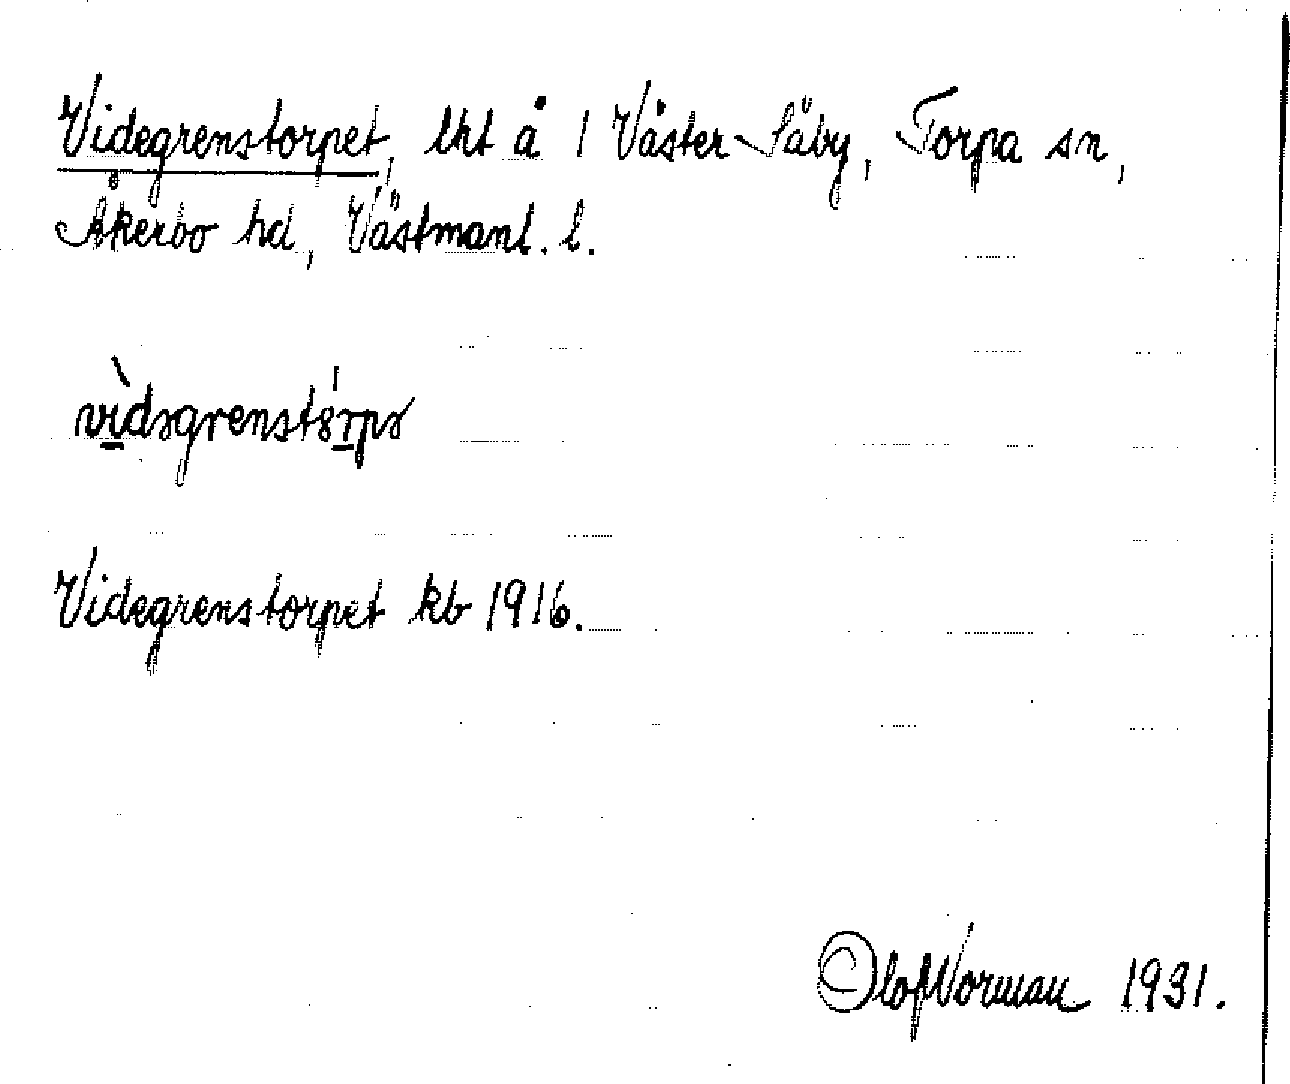 Videgrenstorpet, lht å 1 Väster-Säby, Torpa sn,
Åkerbo hd, Västmanl. l.
vìdəgrenstórpə
Videgrenstorpet kb 1916.
Olof Norman 1931.